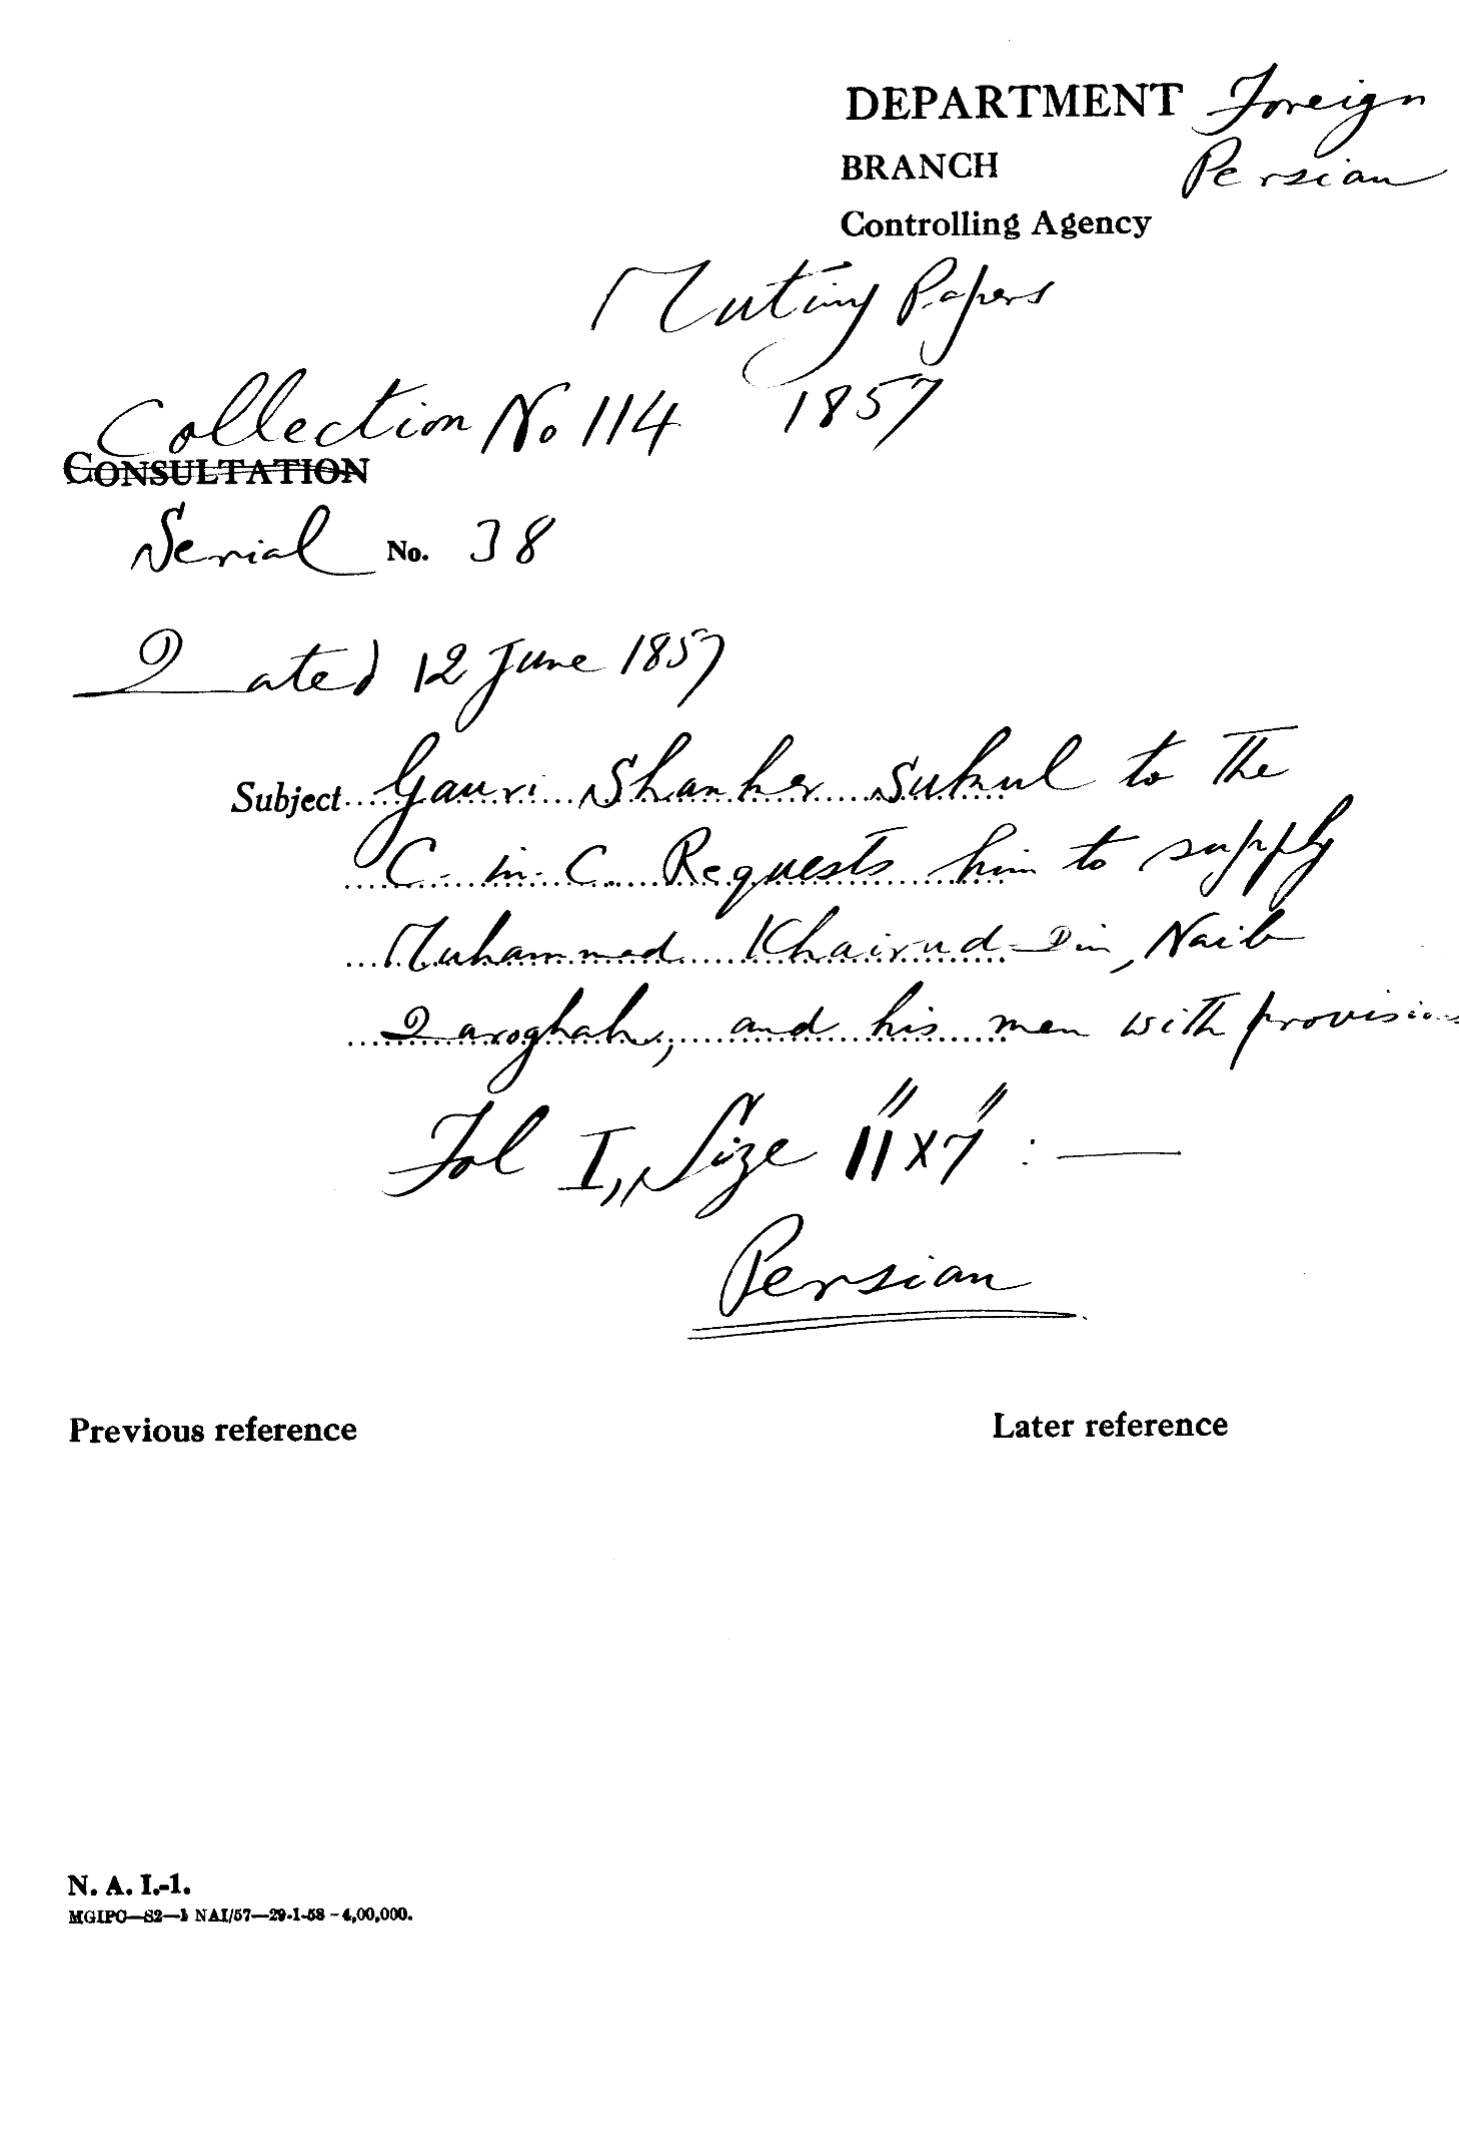 DEPARTMENT Foreign
BRANCH Persian
Controlling Agency
Mutiny Papers
Collection No 114 1857
CONSULTATION
Serial No. 38
Dated 12 June 1857
Subject Gauri Shanker Sukul to the
C-in-C. Requests him to supply
Muhammad Khairud-Din, Naib
Daroghah, and his men with provisions
Fol I, Size 11" x 7" :—
Persian
Previous reference Later reference
N. A. I.-1.
MGIPC—S2—1 NAI/57—29-1-58 - 4,00,000.